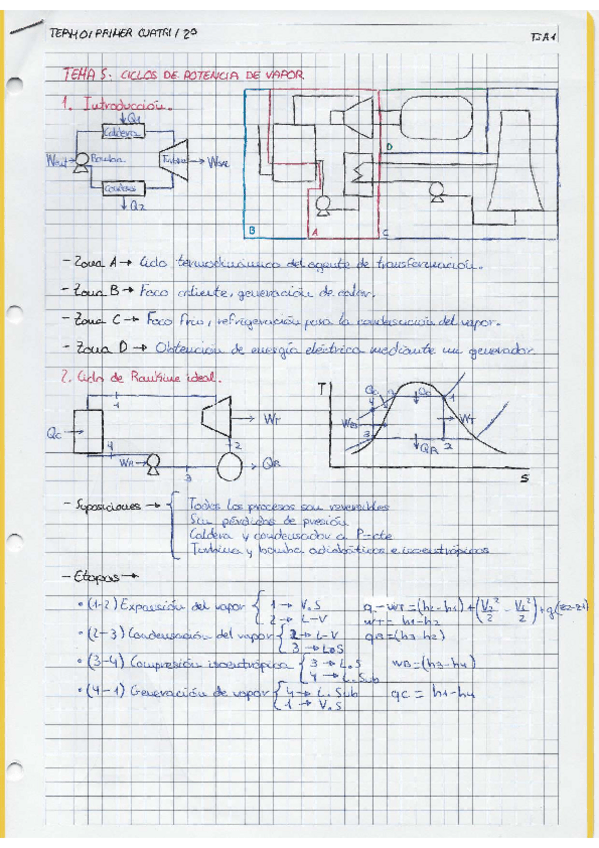 TERMO I PRIMER CUATRI / 2º
T5A1
TEMA 5. CICLOS DE POTENCIA DE VAPOR
1. Introducción.
Q1
Caldera
Bomba
Turbina
Q2
D
B
A
C
- Zona A → Ciclo termodinámico del agente de transformación.
- Zona B → Foco caliente, generación de calor.
- Zona C → Foco frío, refrigeración para la condensación del vapor.
- Zona D → Obtención de energía eléctrica mediante un generador.
2. Ciclo de Rankine ideal.
1
QC
WT
4
2
WB
3
QR
T
1
4
WB
WT
3
2
QR
S
- Suposiciones →
Todos los procesos son reversibles
Sin pérdidas de presión
Caldera y condensador a P=cte
Turbina y bomba adiabáticas e isoentrópicas
- Etapas →
• (1-2) Expansión del vapor { 1 → V.S q - WT = (h2 - h1) + (V2²/2 - V1²/2) + g(z2-z1)
2 → L-V WT = h1-h2
• (2-3) Condensación del vapor { 2 → L-V qR = (h3-h2)
3 → L.S
• (3-4) Compresión isoentrópica { 3 → L.S WB = (h3-h4)
4 → L.Sub
• (4-1) Generación de vapor { 4 → L.Sub qC = h1-h4
1 → V.S